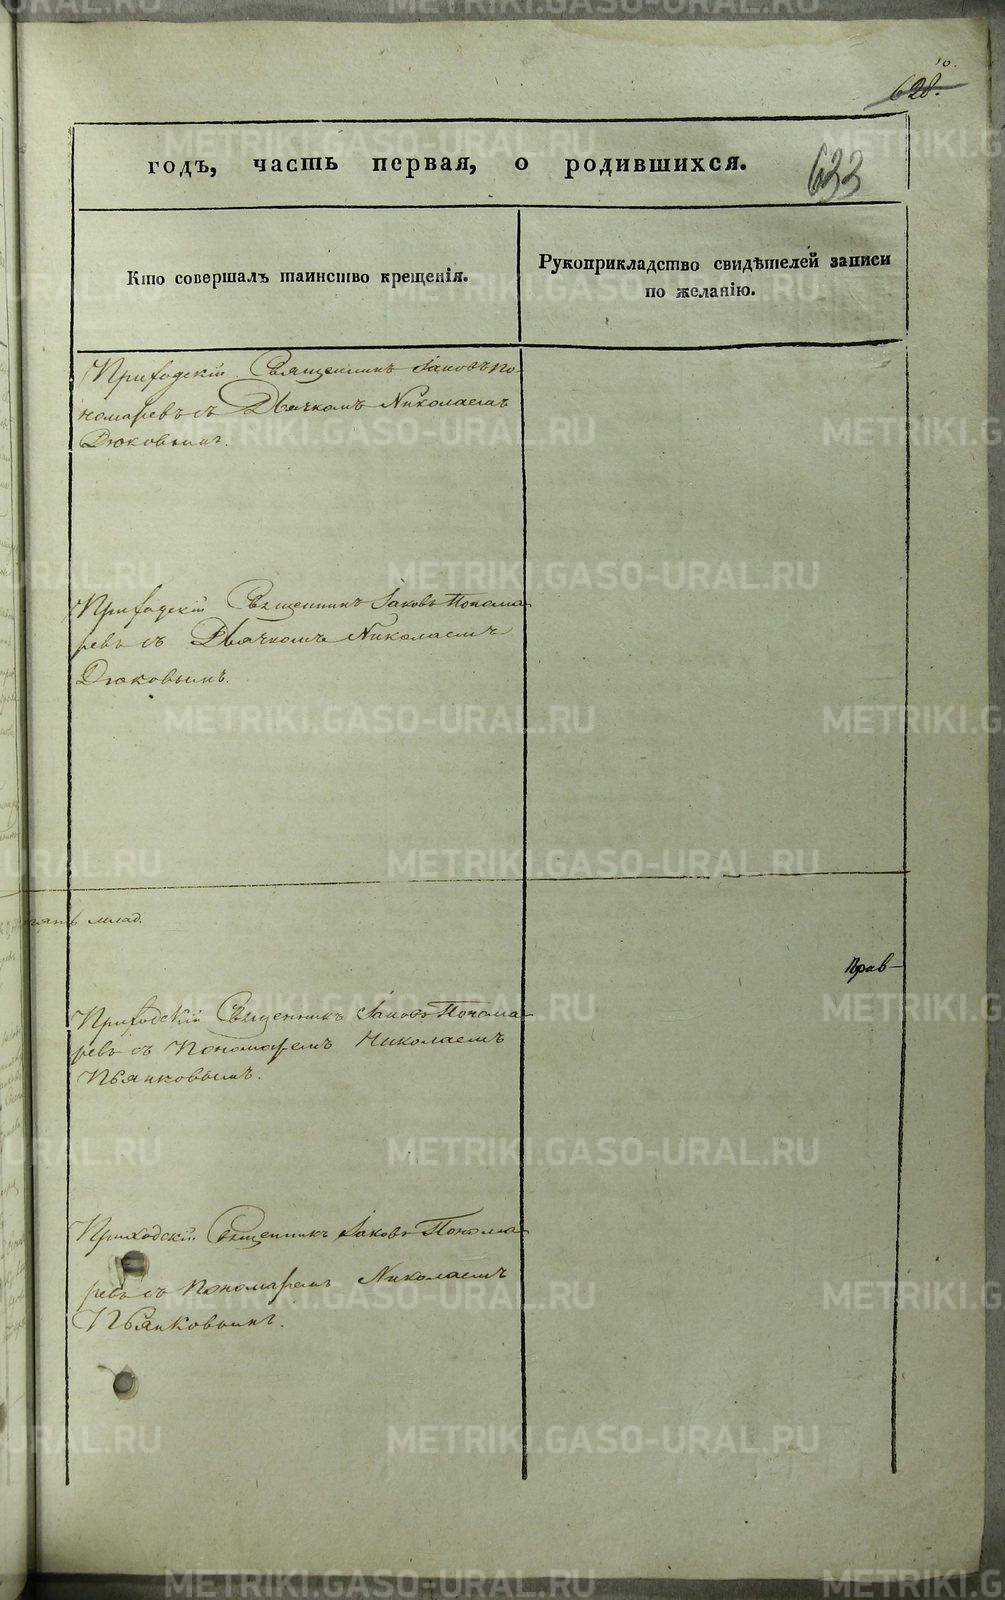 10.
628.
годъ, часть первая, о родившихся.
633
Кто совершалъ таинство крещенія.
Рукоприкладство свидѣтелей записи
по желанію.
Приходскій Священникъ Іаковъ По
номаревъ съ Дьячкомъ Николаемъ
Дюковымъ.
Приходскій Священникъ Іаковъ Понома
ревъ съ Дьячкомъ Николаемъ
Дюковымъ.
млад.
Прав-
Приходскій Священникъ Іаковъ Понома
ревъ съ Пономаремъ Николаемъ
Пьянковымъ.
Приходскій Священникъ Іаковъ Понома
ревъ съ Пономаремъ Николаемъ
Пьянковымъ.
METRIKI.GASO-URAL.RU